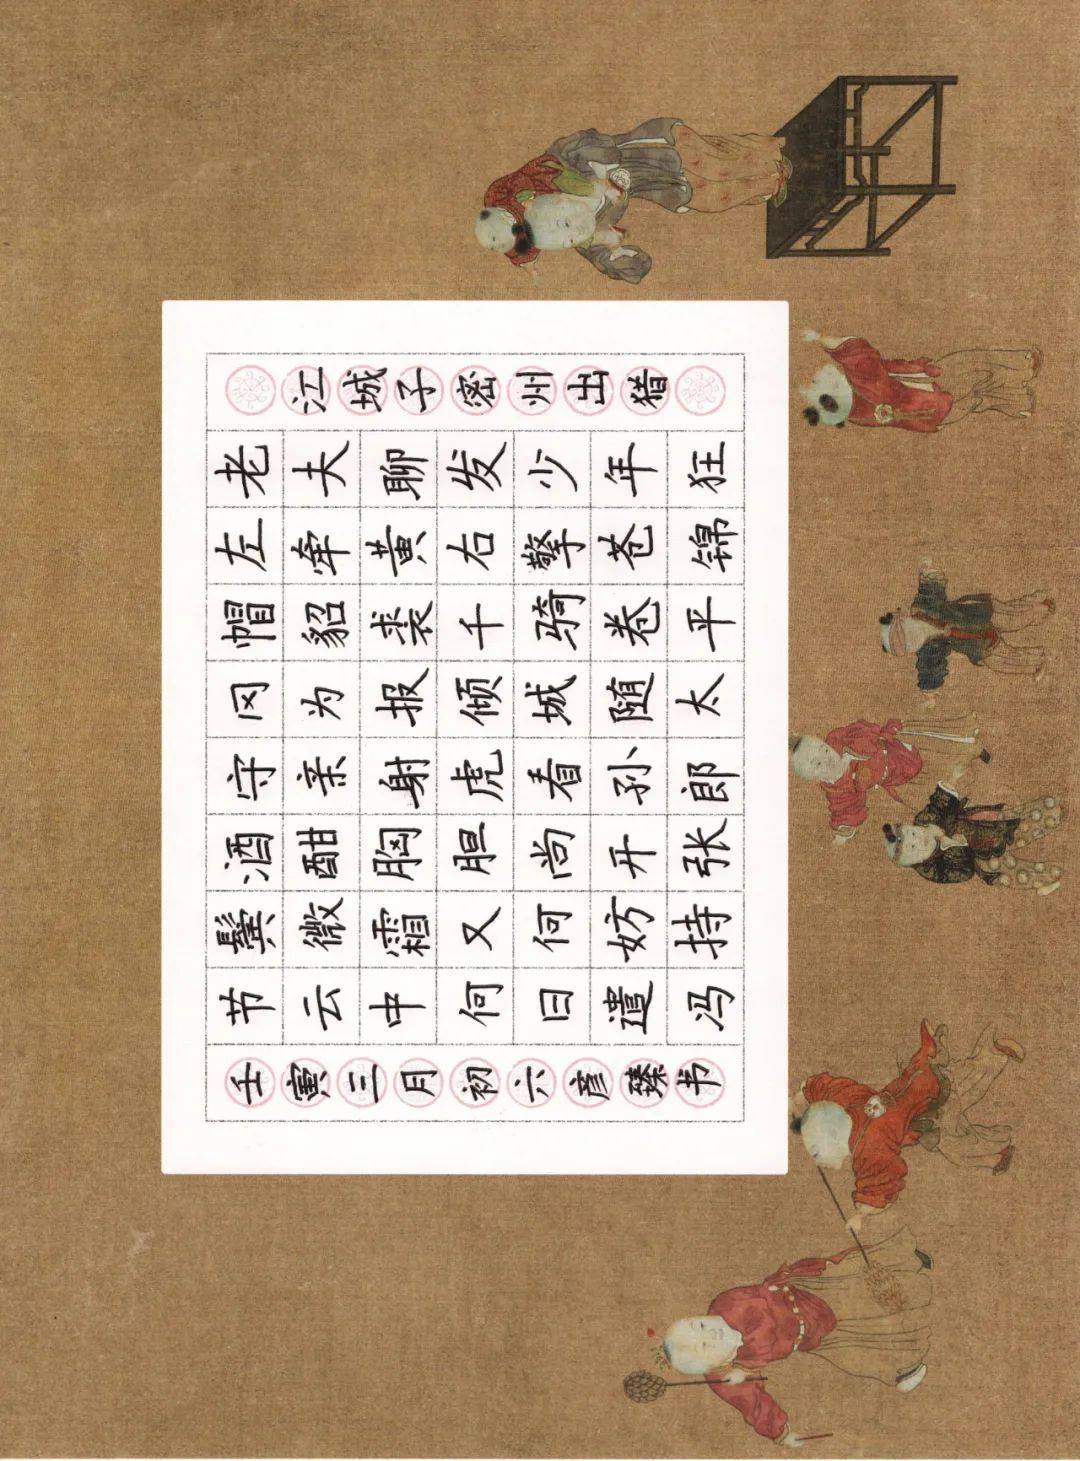 江城子密州出猎
老夫聊发少年狂
左牵黄右擎苍锦
帽貂裘千骑卷平
冈为报倾城随太
守亲射虎看孙郎
酒酣胸胆尚开张
鬓微霜又何妨持
节云中何日遣冯
壬寅三月初六彦臻书